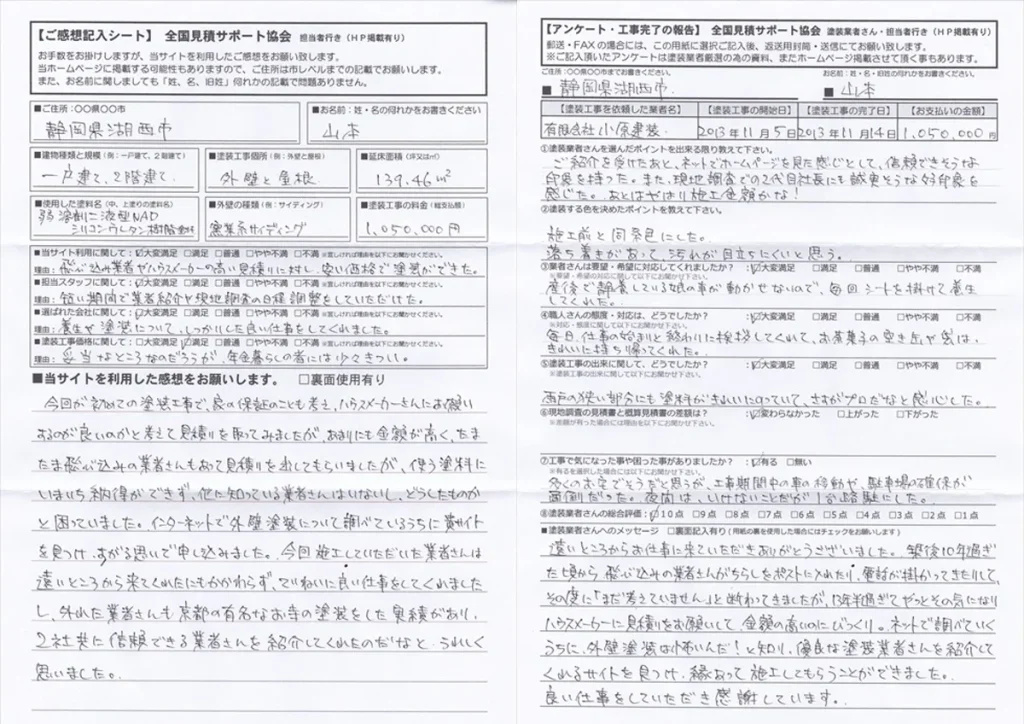 【ご感想記入シート】 全国見積サポート協会 担当者行き（HP掲載有り）
お手数をお掛けしますが、当サイトを利用したご感想をお願い致します。
当ホームページに掲載する可能性もありますので、ご住所は市レベルまでの記載でお願いします。
また、お名前に関しましても「姓、名、旧姓」何れかの記載で問題ありません。
■ご住所：〇〇県〇〇市
静岡県湖西市
■お名前：姓・名の何れかをお書きください
山本
■建物種類と規模（例：一戸建て、2階建て）
一戸建て、2階建て
■塗装工事個所（例：外壁と屋根）
外壁と屋根
■延床面積（坪又は㎡）
139.46㎡
■使用した塗料名（中、上塗りの塗料名）
弱溶剤二液型NAD
シリコンウレタン樹脂塗料
■外壁の種類（例：サイディング）
窯業系サイディング
■塗装工事の料金（総支払額）
1,050,000円
■当サイト利用に関して：☑大変満足 □満足 □普通 □やや不満 □不満 ※宜しければ理由も以下にお聞かせください。
理由：飛び込み業者やハウスメーカーの高い見積りに対し、安い価格で塗装ができた。
■担当スタッフに関して：☑大変満足 □満足 □普通 □やや不満 □不満 ※宜しければ理由も以下にお聞かせください。
理由：短い期間で業者紹介や現地調査の日程調整をしていただけた。
■選ばれた会社に関して：☑大変満足 □満足 □普通 □やや不満 □不満 ※宜しければ理由も以下にお聞かせください。
理由：養生や塗装について、しっかりした良い仕事をしてくれました。
■塗装工事価格に関して：□大変満足 ☑満足 □普通 □やや不満 □不満 ※宜しければ理由も以下にお聞かせください。
理由：妥当なところなのだろうが、年金暮らしの者には少々きつい。
■当サイトを利用した感想をお願いします。 □裏面使用有り
今回が初めての塗装工事で、家の保証のことも考え、ハウスメーカーさんにお願い
するのが良いのかと考えて見積りを取ってみましたが、あまりにも金額が高く、たま
たま飛び込みの業者さんもあって見積りを出してもらいましたが、使う塗料に
いまいち納得ができず、他に知っている業者さんはいないし、どうしたものか
と困っていました。インターネットで外壁塗装について調べているうちに貴サイト
を見つけ、すがる思いで申し込みました。今回施工していただいた業者さんは
遠いところから来てくれたにもかかわらず、ていねいに良い仕事をしてくれました
し、外れた業者さんも京都の有名なお寺の塗装をした実績があり、
2社共に信頼できる業者さんを紹介してくれたのだなと、うれしく
思いました。
【アンケート・工事完了の報告】 全国見積サポート協会 塗装業者さん・担当者行き（HP掲載有り）
郵送・FAXの場合には、この用紙に選択ご記入後、返送用封筒・送信にてお願い致します。
※ご記入頂いたアンケートは塗装業者厳選の為の資料、またホームページ掲載させて頂く事もあります。
ご住所：〇〇県〇〇市までお書きください。
■ 静岡県湖西市
お名前：姓・名の何れかをお書きください。
■ 山本
【塗装工事を依頼した業者名】 【塗装工事の開始日】 【塗装工事の完了日】 【お支払いの金額】
有限会社小原建装 2013年11月5日 2013年11月14日 1,050,000円
①塗装業者さんを選んだポイントを出来る限り教えて下さい。
ご紹介を受けたあと、ネットでホームページを見た感じとして、信頼できそうな
印象を持った。また、現地調査での2代目社長にも誠実そうな好印象を
感じた。あとはやはり施工金額かな！
②塗装する色を決めたポイントを教えて下さい。
施工前と同系色にした。
落ち着きがあって、汚れが目立ちにくいと思う。
③業者さんは要望・希望に対応してくれましたか？ ☑大変満足 □満足 □普通 □やや不満 □不満
※要望・希望に関して以下にお聞かせ下さい。
産後で静養している娘の車が動かせないので、毎回シートを掛けて養生
してくれた。
④職人さんの態度・対応は、どうでしたか？ ☑大変満足 □満足 □普通 □やや不満 □不満
※対応・態度に関して以下にお聞かせ下さい。
毎日、仕事の始まりと終わりに挨拶してくれて、お茶菓子の空き缶や袋は、
きれいに持ち帰ってくれた。
⑤塗装工事の出来に関して、どうでしたか？ ☑大変満足 □満足 □普通 □やや不満 □不満
※塗装工事の出来に関して以下にお聞かせ下さい。
雨戸の狭い部分にも塗料がきれいにのっていて、さすがプロだなと感心した。
⑥現地調査の見積書と概算見積書の差額は？ ☑変わらなかった □上がった □下がった
※差額が有った場合には理由を以下にお聞かせ下さい。
⑦工事で気になった事や困った事がありましたか？：☑有る □無い
※有るを選択した場合には以下にお聞かせ下さい。
多くのお宅でそうだと思うが、工事期間中の車の移動や、駐車場の確保が
面倒だった。夜間は、いけないことだが1台路駐にした。
⑧塗装業者さんの総合評価：☑10点 □9点 □8点 □7点 □6点 □5点 □4点 □3点 □2点 □1点
■塗装業者さんへのメッセージ □裏面記入有り（用紙の裏を使用した場合にはチェックをお願いします）
遠いところからお仕事に来ていただきありがとうございました。築後10年過ぎ
た頃から、飛び込みの業者さんがちらしをポストに入れたり、電話が掛かってきたりして、
その度に「まだ考えていません」と断わってきましたが、13年半過ぎてやっとその気になり
ハウスメーカーに見積りをお願いして、金額の高いのにびっくり。ネットで調べていく
うちに、外壁塗装は怖いんだ！と知り、優良な塗装業者さんを紹介して
くれるサイトを見つけ、縁あって施工してもらうことができました。
良い仕事をしていただき感謝しています。